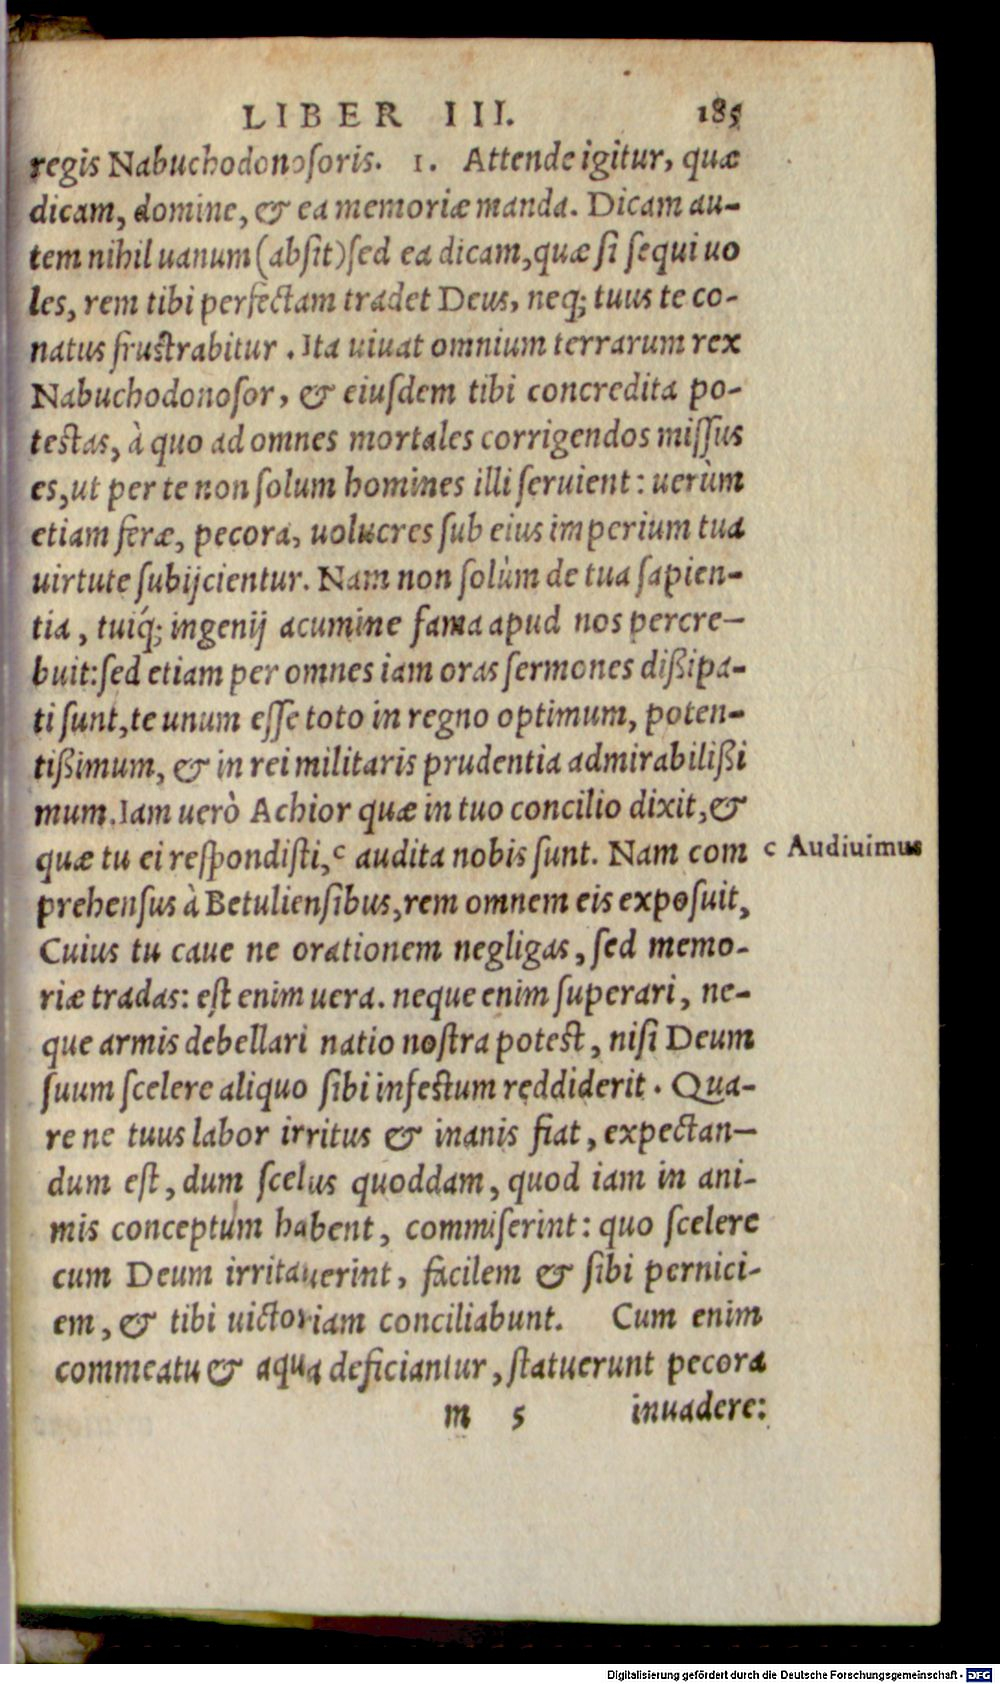 LIBER III. 185
regis Nabuchodonosoris. 1. Attende igitur, quæ
dicam, domine, & ea memoriæ manda. Dicam au-
tem nihil uanum (absit) sed ea dicam, quæ si sequi uo
les, rem tibi perfectam tradet Deus, neq; tuus te co-
natus frustrabitur. Ita uiuat omnium terrarum rex
Nabuchodonosor, & eiusdem tibi concredita po-
testas, à quo ad omnes mortales corrigendos missus
es, ut per te non solum homines illi seruient: uerùm
etiam feræ, pecora, uolucres sub eius imperium tua
uirtute subijcientur. Nam non solùm de tua sapien-
tia, tuiq́; ingenij acumine fama apud nos percre-
buit: sed etiam per omnes iam oras sermones dißipa-
ti sunt, te unum esse toto in regno optimum, poten-
tißimum, & in rei militaris prudentia admirabilißi
mum. Iam uerò Achior quæ in tuo concilio dixit, &
quæ tu ei respondisti, ᶜ audita nobis sunt. Nam com
c Audiuimus
prehensus à Betuliensibus, rem omnem eis exposuit,
Cuius tu caue ne orationem negligas, sed memo-
riæ tradas: est enim uera. neque enim superari, ne-
que armis debellari natio nostra potest, nisi Deum
suum scelere aliquo sibi infestum reddiderit. Qua-
re ne tuus labor irritus & inanis fiat, expectan-
dum est, dum scelus quoddam, quod iam in ani-
mis conceptum habent, commiserint: quo scelere
cum Deum irritauerint, facilem & sibi pernici-
em, & tibi uictoriam conciliabunt. Cum enim
commeatu & aqua deficiantur, statuerunt pecora
m 5 inuadere:
Digitalisierung gefördert durch die Deutsche Forschungsgemeinschaft - DFG